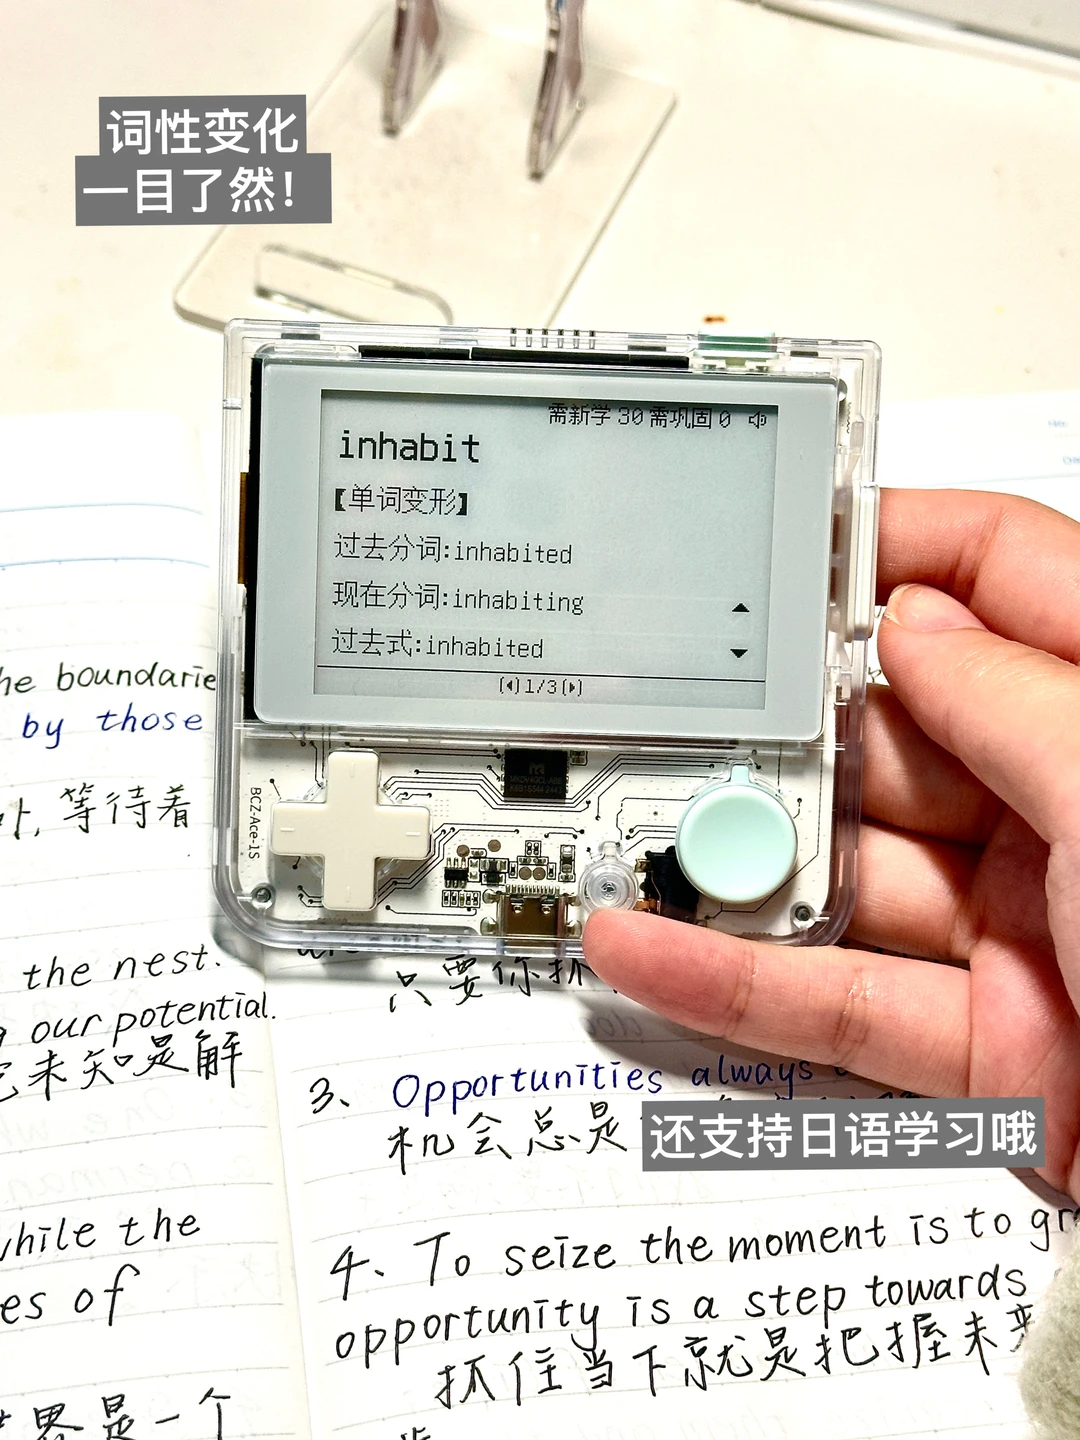 词性变化
一目了然！
需新学 30 需巩固 0
inhabit
【单词变形】
过去分词:inhabited
现在分词:inhabiting
过去式:inhabited
1/3
BCZ-Ace-1S
he boundarie
by those
等待着
the nest.
our potential.
未知是解
while the
es of
界是一个
只要你抓
3、Opportunities always
机会总是
还支持日语学习哦
4、To seize the moment is to gr
opportunity is a step towards
抓住当下就是把握未来